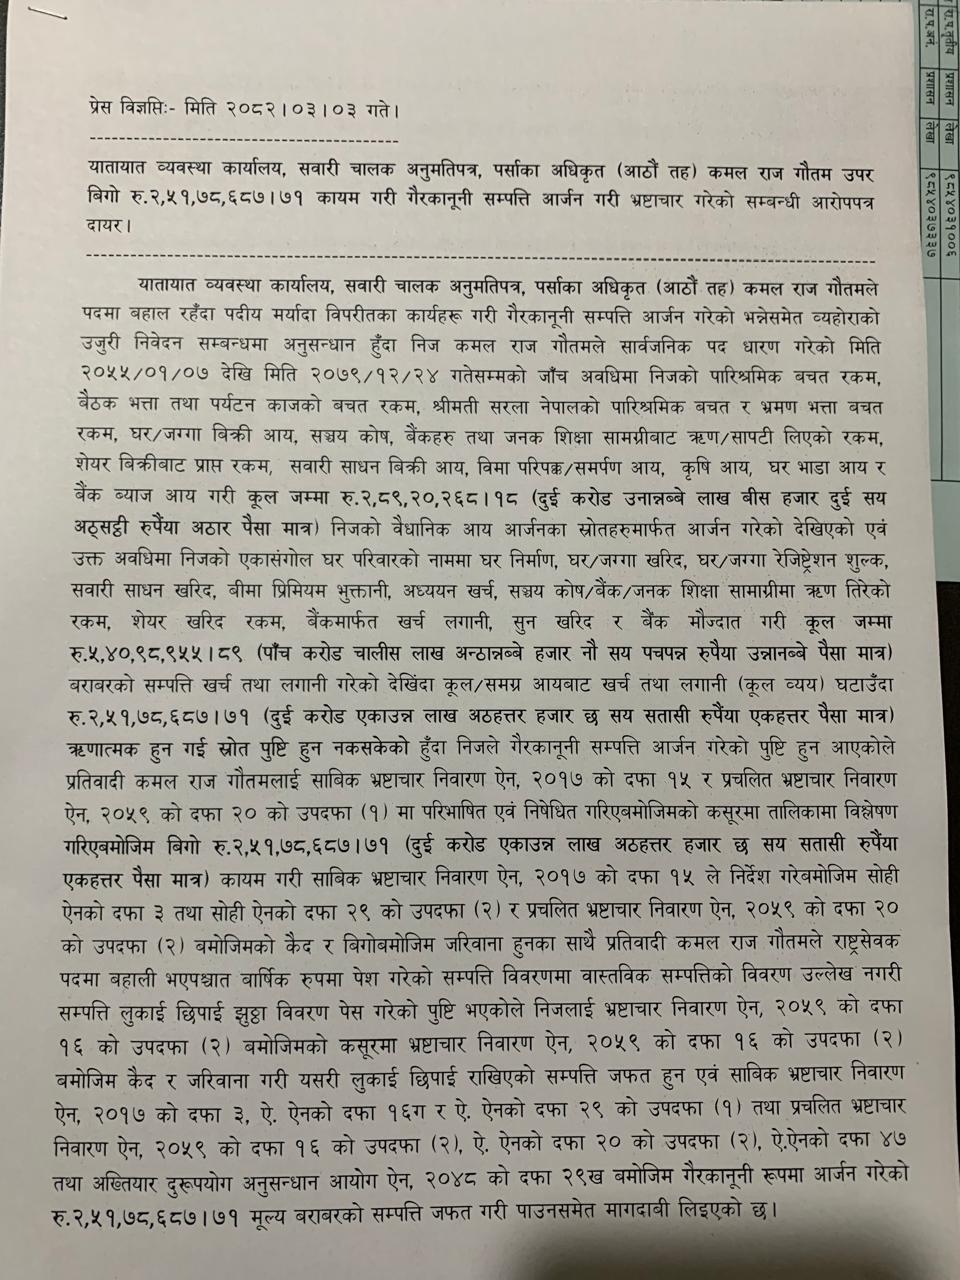 प्रेस विज्ञप्तिः- मिति २०८२।०३।०३ गते।
यातायात व्यवस्था कार्यालय, सवारी चालक अनुमतिपत्र, पर्साका अधिकृत (आठौं तह) कमल राज गौतम उपर
बिगो रु.२,५१,७८,६८७।७१ कायम गरी गैरकानूनी सम्पत्ति आर्जन गरी भ्रष्टाचार गरेको सम्बन्धी आरोपपत्र
दायर।
यातायात व्यवस्था कार्यालय, सवारी चालक अनुमतिपत्र, पर्साका अधिकृत (आठौं तह) कमल राज गौतमले
पदमा बहाल रहँदा पदीय मर्यादा विपरीतका कार्यहरू गरी गैरकानूनी सम्पत्ति आर्जन गरेको भन्नेसमेत व्यहोराको
उजुरी निवेदन सम्बन्धमा अनुसन्धान हुँदा निज कमल राज गौतमले सार्वजनिक पद धारण गरेको मिति
२०५५/०१/०७ देखि मिति २०७९/१२/२४ गतेसम्मको जाँच अवधिमा निजको पारिश्रमिक बचत रकम,
बैठक भत्ता तथा पर्यटन काजको बचत रकम, श्रीमती सरला नेपालको पारिश्रमिक बचत र भ्रमण भत्ता बचत
रकम, घर/जग्गा बिक्री आय, सञ्चय कोष, बैंकहरु तथा जनक शिक्षा सामग्रीबाट ऋण/सापटी लिएको रकम,
शेयर बिक्रीबाट प्राप्त रकम, सवारी साधन बिक्री आय, विमा परिपक्क/समर्पण आय, कृषि आय, घर भाडा आय र
बैंक ब्याज आय गरी कूल जम्मा रु.२,८९,२०,२६८।१८ (दुई करोड उनान्नब्बे लाख बीस हजार दुई सय
अठ्सट्ठी रुपैंया अठार पैसा मात्र) निजको वैधानिक आय आर्जनका स्रोतहरुमार्फत आर्जन गरेको देखिएको एवं
उक्त अवधिमा निजको एकासंगोल घर परिवारको नाममा घर निर्माण, घर/जग्गा खरिद, घर/जग्गा रेजिष्ट्रेशन शुल्क,
सवारी साधन खरिद, बीमा प्रिमियम भुक्तानी, अध्ययन खर्च, सञ्चय कोष/बैंक/जनक शिक्षा सामाग्रीमा ऋण तिरेको
रकम, शेयर खरिद रकम, बैंकमार्फत खर्च लगानी, सुन खरिद र बैंक मौज्दात गरी कूल जम्मा
रु.५,४०,९८,९५५।८९ (पाँच करोड चालीस लाख अन्ठान्नब्बे हजार नौ सय पचपन्न रुपैया उन्नानब्बे पैसा मात्र)
बराबरको सम्पत्ति खर्च तथा लगानी गरेको देखिंदा कूल/समग्र आयबाट खर्च तथा लगानी (कूल व्यय) घटाउँदा
रु.२,५१,७८,६८७।७१ (दुई करोड एकाउन्न लाख अठहत्तर हजार छ सय सतासी रुपैंया एकहत्तर पैसा मात्र)
ऋणात्मक हुन गई स्रोत पुष्टि हुन नकसकेको हुँदा निजले गैरकानूनी सम्पत्ति आर्जन गरेको पुष्टि हुन आएकोले
प्रतिवादी कमल राज गौतमलाई साबिक भ्रष्टाचार निवारण ऐन, २०१७ को दफा १५ र प्रचलित भ्रष्टाचार निवारण
ऐन, २०५९ को दफा २० को उपदफा (१) मा परिभाषित एवं निषेधित गरिएबमोजिमको कसूरमा तालिकामा विश्लेषण
गरिएबमोजिम बिगो रु.२,५१,७८,६८७।७१ (दुई करोड एकाउन्न लाख अठहत्तर हजार छ सय सतासी रुपैंया
एकहत्तर पैसा मात्र) कायम गरी साबिक भ्रष्टाचार निवारण ऐन, २०१७ को दफा १५ ले निर्देश गरेबमोजिम सोही
ऐनको दफा ३ तथा सोही ऐनको दफा २९ को उपदफा (२) र प्रचलित भ्रष्टाचार निवारण ऐन, २०५९ को दफा २०
को उपदफा (२) बमोजिमको कैद र बिगोबमोजिम जरिवाना हुनका साथै प्रतिवादी कमल राज गौतमले राष्ट्रसेवक
पदमा बहाली भएपश्चात बार्षिक रुपमा पेश गरेको सम्पत्ति विवरणमा वास्तविक सम्पत्तिको विवरण उल्लेख नगरी
सम्पत्ति लुकाई छिपाई झुठ्ठा विवरण पेस गरेको पुष्टि भएकोले निजलाई भ्रष्टाचार निवारण ऐन, २०५९ को दफा
१६ को उपदफा (२) बमोजिमको कसूरमा भ्रष्टाचार निवारण ऐन, २०५९ को दफा १६ को उपदफा (२)
बमोजिम कैद र जरिवाना गरी यसरी लुकाई छिपाई राखिएको सम्पत्ति जफत हुन एवं साबिक भ्रष्टाचार निवारण
ऐन, २०१७ को दफा ३, ऐ. ऐनको दफा १६ग र ऐ. ऐनको दफा २९ को उपदफा (१) तथा प्रचलित भ्रष्टाचार
निवारण ऐन, २०५९ को दफा १६ को उपदफा (२), ऐ. ऐनको दफा २० को उपदफा (२), ऐ.ऐनको दफा ४७
तथा अख्तियार दुरूपयोग अनुसन्धान आयोग ऐन, २०४८ को दफा २९ख बमोजिम गैरकानूनी रूपमा आर्जन गरेको
रु.२,५१,७८,६८७।७१ मूल्य बराबरको सम्पत्ति जफत गरी पाउनसमेत मागदाबी लिइएको छ।
रा.प.तृतीय प्रशासन लेखा ९८५४०३१००६
रा.प.अनं. प्रशासन लेखा ९८५४०३७३३७